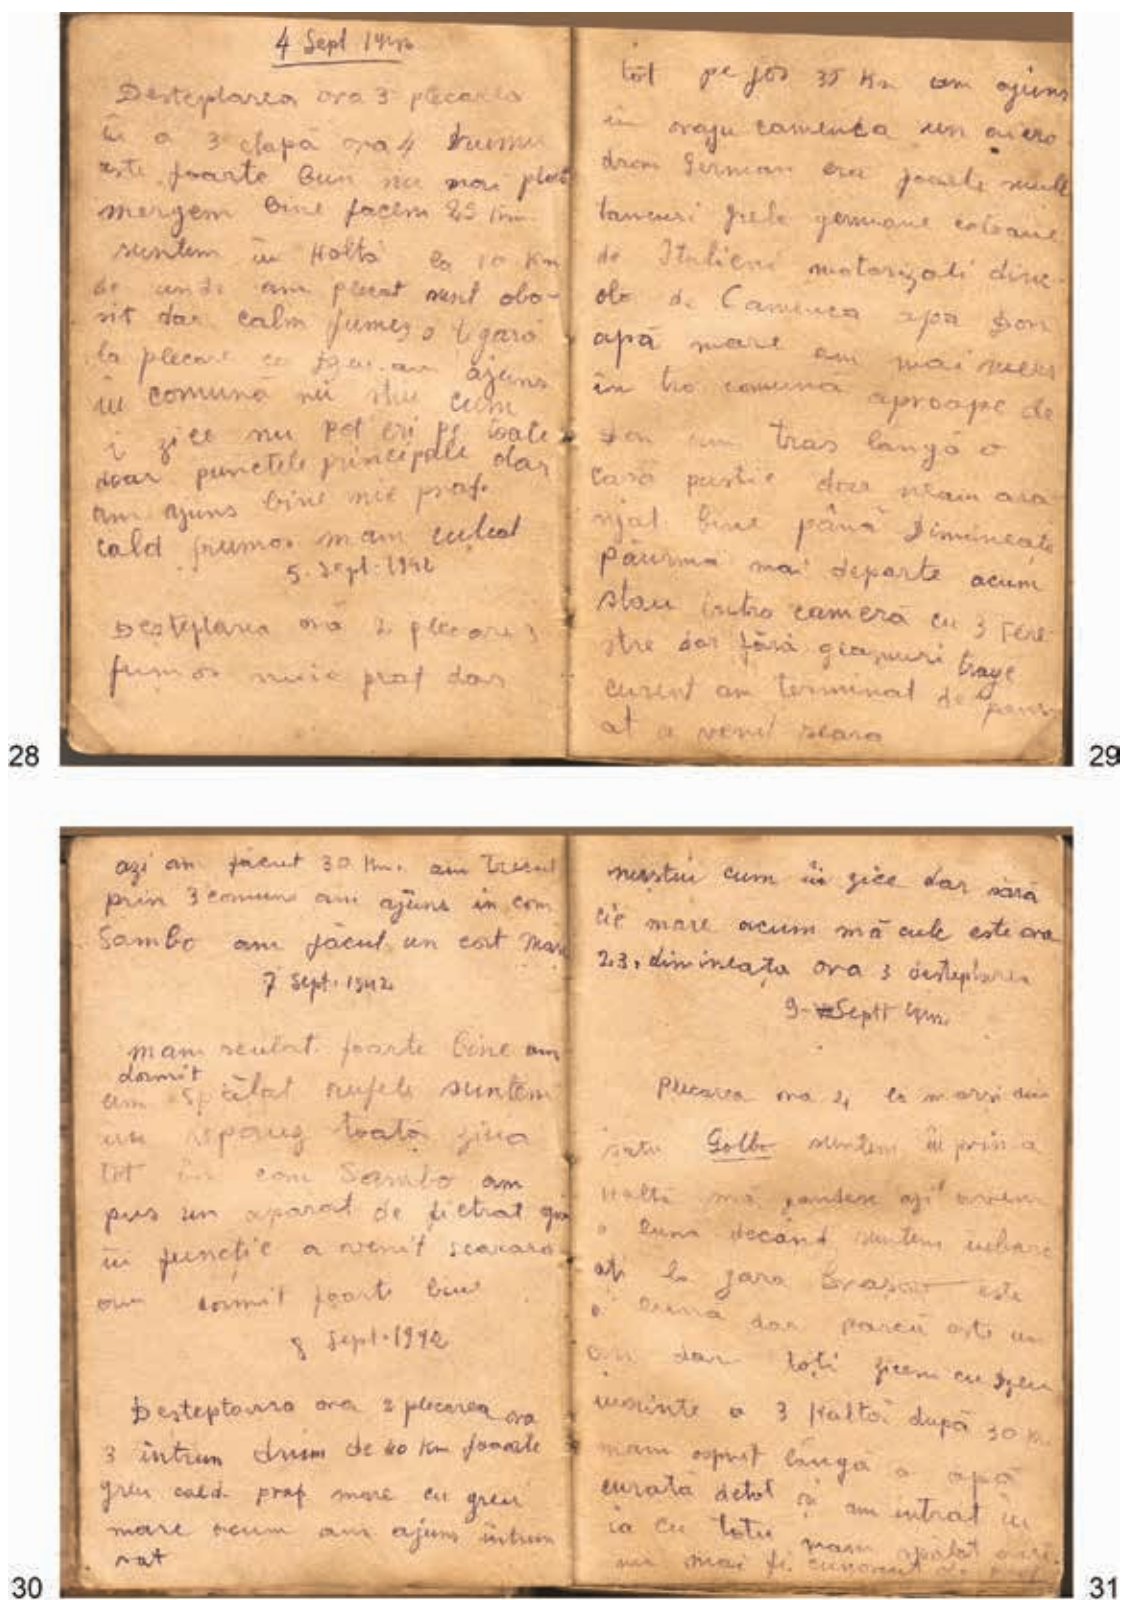 4 Sept 1942
Desteplarea ora 3 plecarea
în a 3 etapă ora 4 drumu
este foarte bun nu mai plouă
mergem bine facem 25 Km
suntem în Haltă la 10 Km
de unde am plecat sunt obo-
sit dar calm fumez o tigară
la plecare cu Dzeu am ajuns
în comună nu stiu cum
i zice nu pot scri pe toate
doar punctele principale dar
am ajuns bine nic praf.
cald frumos mam culcat
5. Sept. 1942
Desteplarea oră 2 plecare 3
frumos nuie praf dar
28
tot pe jos 35 Km am ajuns
în oraju camenca un aero
drom German era foarte mult
tancuri grele germane coloane
de Italieni motorizati dinc-
olo de Camenca apa Don
apă mare am mai mers
în tro comună aproape de
Don am tras langă o
casă pustie doar neam ara-
njat bine până Dimineată
păurmă mai departe acum
stau intro cameră cu 3 fere
stre dar fără geamuri trage
curent am terminat de
at a venit seara
29
azi am făcut 30 Km. am trecut
prin 3 comune am ajuns in com
Sambo am făcut un cort mare
7 Sept. 1942
mam sculat foarte bine am
dormit
am spălat rufele suntem
în repaug toată ziua
tot în com Sambo am
pus un aparat de fictrat
în funcție a venit seara
am dormit foarte bine
8 Sept. 1942
Desteptarea ora 2 plecarea ora
3 întrun drum de 40 Km foarte
greu cald praf mare cu greu
mare acum am ajuns intrun
sat
30
nusstiu cum îi zice dar
mare acum mă culc este ora
23, dimineața ora 3 desteplarea
9 Sept 1942
Plecarea ora 4 la marsi din
satu Golbo suntem în prima
Haltă mă gandesc azi avem
o luna decând suntem inbarc
ați la gara Brasov este
o lună dar parcă este un
an dar toți zicem cu Dzeu
inainte a 3 Haltă după 30 Km
mam oprit langă o apă
curată detot și am intrat în
ia cu totu mam spălat
nu mai fi cunoscut de praf
31